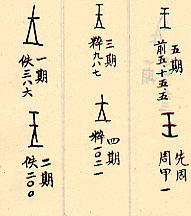 一期
佚三八六
二期
佚二〇〇
三期
粹九八七
四期
粹一〇二一
五期
前五・一五・五
先周
周甲一